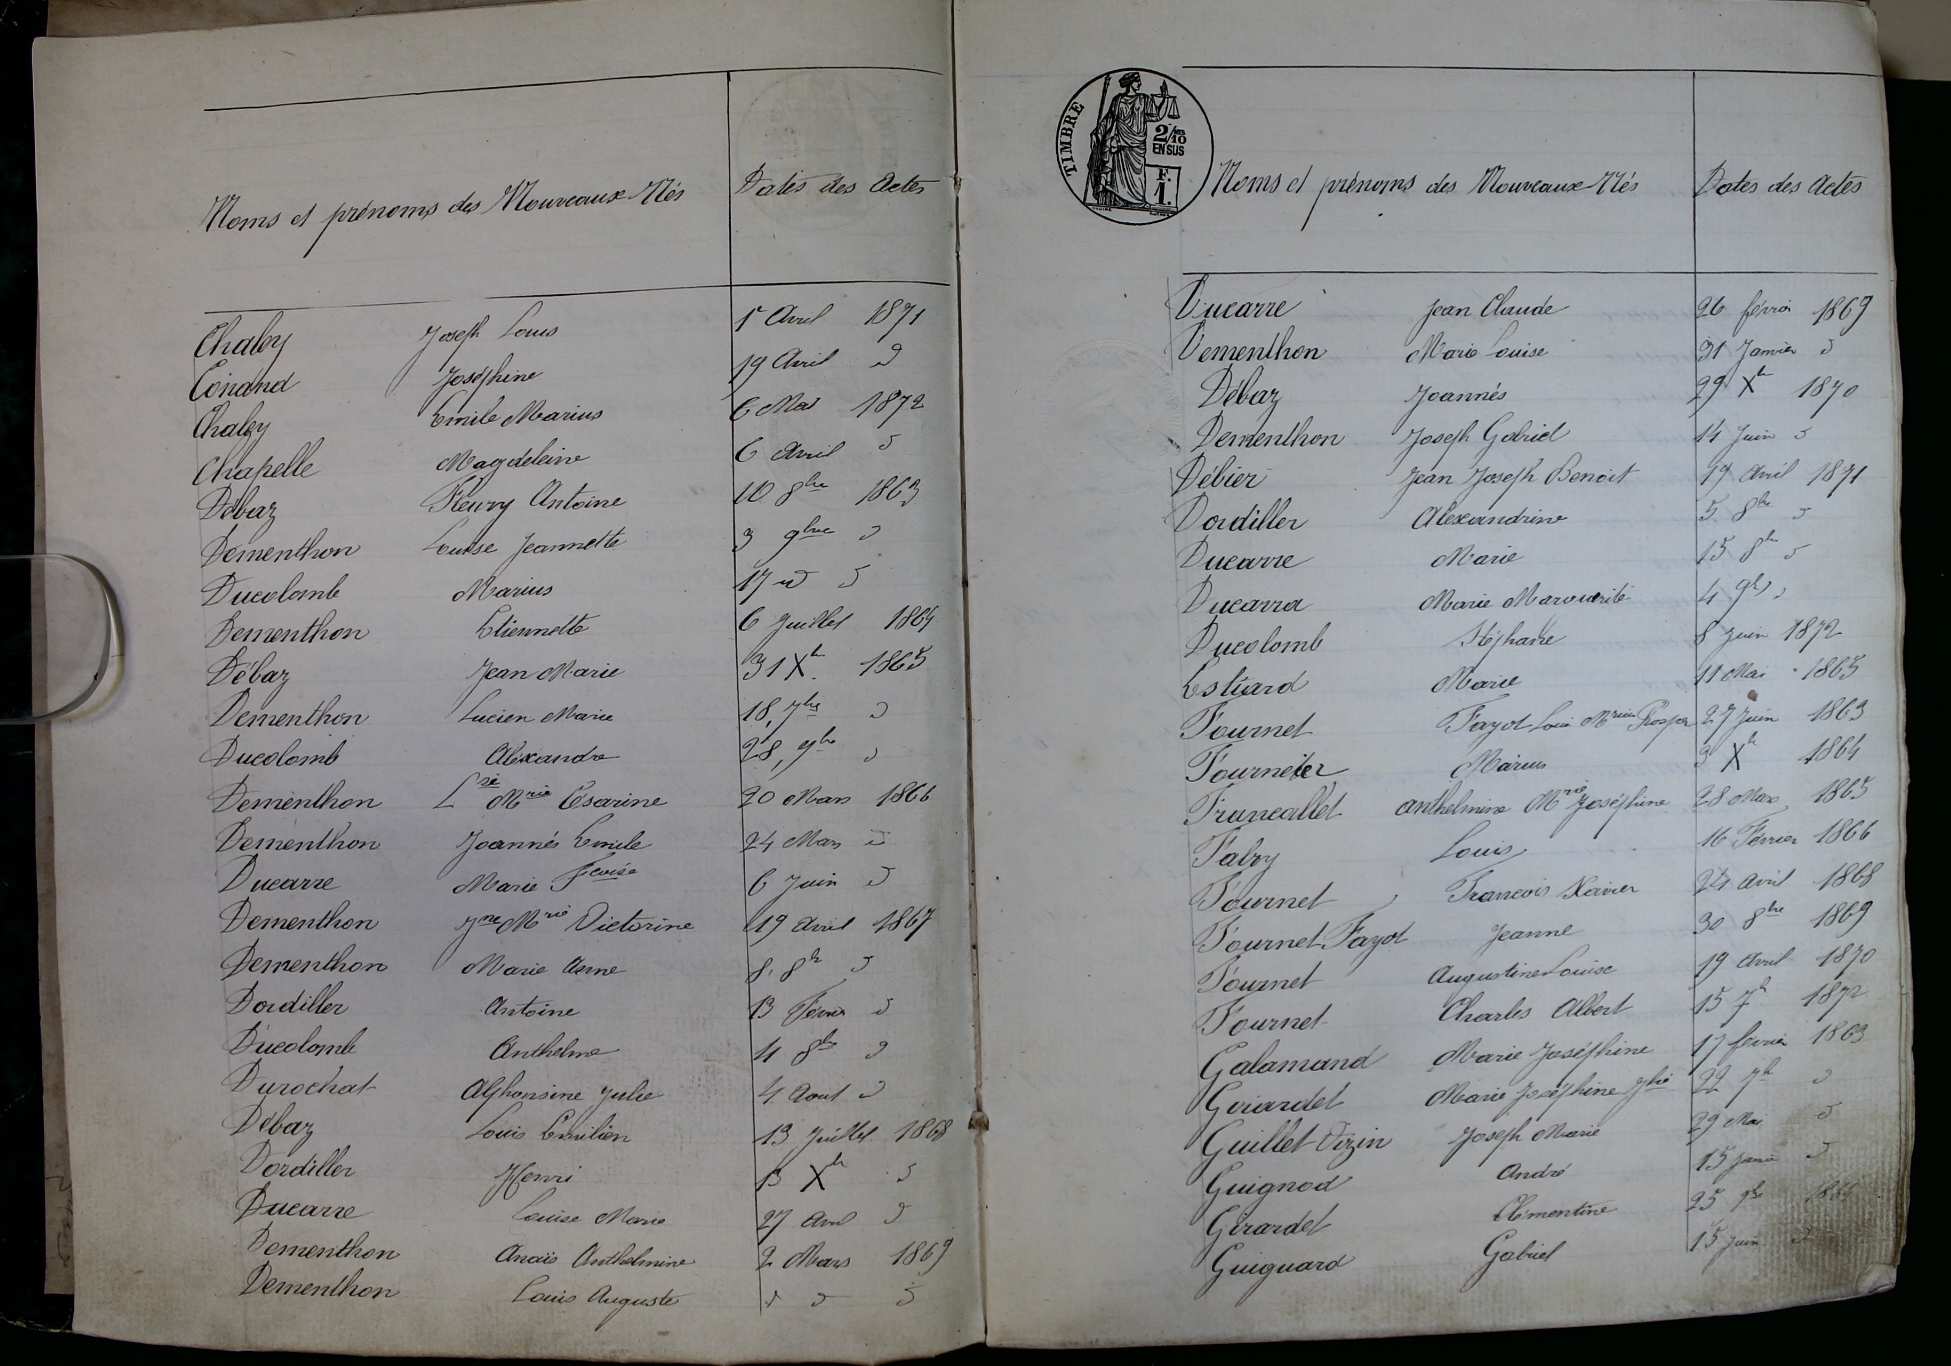 Noms et prénoms des Nouveaux-Nés Dates des Actes
Chaley Joseph Louis 1r Avril 1871
Coinand Joséphine 19 Avril d
Chaley Emile Marius 6 Mai 1872
Chapelle Magdeleine 6 Avril d
Débaz Fleury Antoine 10 8bre 1863
Dementhon Louise Jeannette 3 9bre d
Ducolomb Marius 17 d d
Dementhon Etiennette 6 Juillet 1864
Débaz Jean Marie 31 Xb 1865
Dementhon Lucien Marie 18, 7bre d
Ducolomb Alexandre 28, 9bre d
Dementhon Lse Mrie Césarine 20 Mars 1866
Dementhon Joannés Emile 24 Mars d
Ducarre Marie Fçoise 6 Juin d
Dementhon Jne Mrie Victorine 19 Avril 1867
Dementhon Marie Anne 8, 8b d
Dordiller Antoine 13 Février d
Ducolomb Anthelme 4 8bre d
Durochat Alphonsine Julie 4 Aout d
Débaz Louis Emilien 13 Juillet 1868
Dordiller Henri 13 Xb d
Ducarre Louise Marie 27 Avril d
Dementhon Anaïs Anthelmine 2 Mars 1869
Dementhon Louis Auguste d d d
TIMBRE
2/10
EN SUS
F.
1.
Noms et prénoms des Nouveaux-Nés Dates des Actes
Ducarre Jean Claude 26 février 1869
Dementhon Marie Louise 31 Janvier d
Débaz Joannés 29 Xb 1870
Dementhon Joseph Gabriel 14 Juin d
Débier Jean Joseph Benoit 17 Avril 1871
Dordiller Alexandrine 5 8bre d
Ducarre Marie 15 8b d
Ducarra Marie Marguerite 4 9b d
Ducolomb Stéphanie 8 Juin 1872
Estiard Marie 11 Mai 1865
Fournet Fayot Louis Mrius Prosper 27 Juin 1863
Fournetier Marius 3 Xb 1864
Francallet Anthelmine Mrie Joséphine 28 Mars 1865
Fabry Louis 16 Février 1866
Fournet François Xavier 24 Avril 1868
Fournet Fayot Jeanne 30 8bre 1869
Fournet Augustine Louise 19 Avril 1870
Fournet Charles Albert 15 7b 1872
Galamand Marie Joséphine 17 février 1863
Goiardet Marie Joséphine 22 7b d
Guillet Vizin Joseph Marie 29 Mai d
Guignod André 15 d
Girardet Clémentine 25 9bre
Guiguard Gabriel 15 Juin d